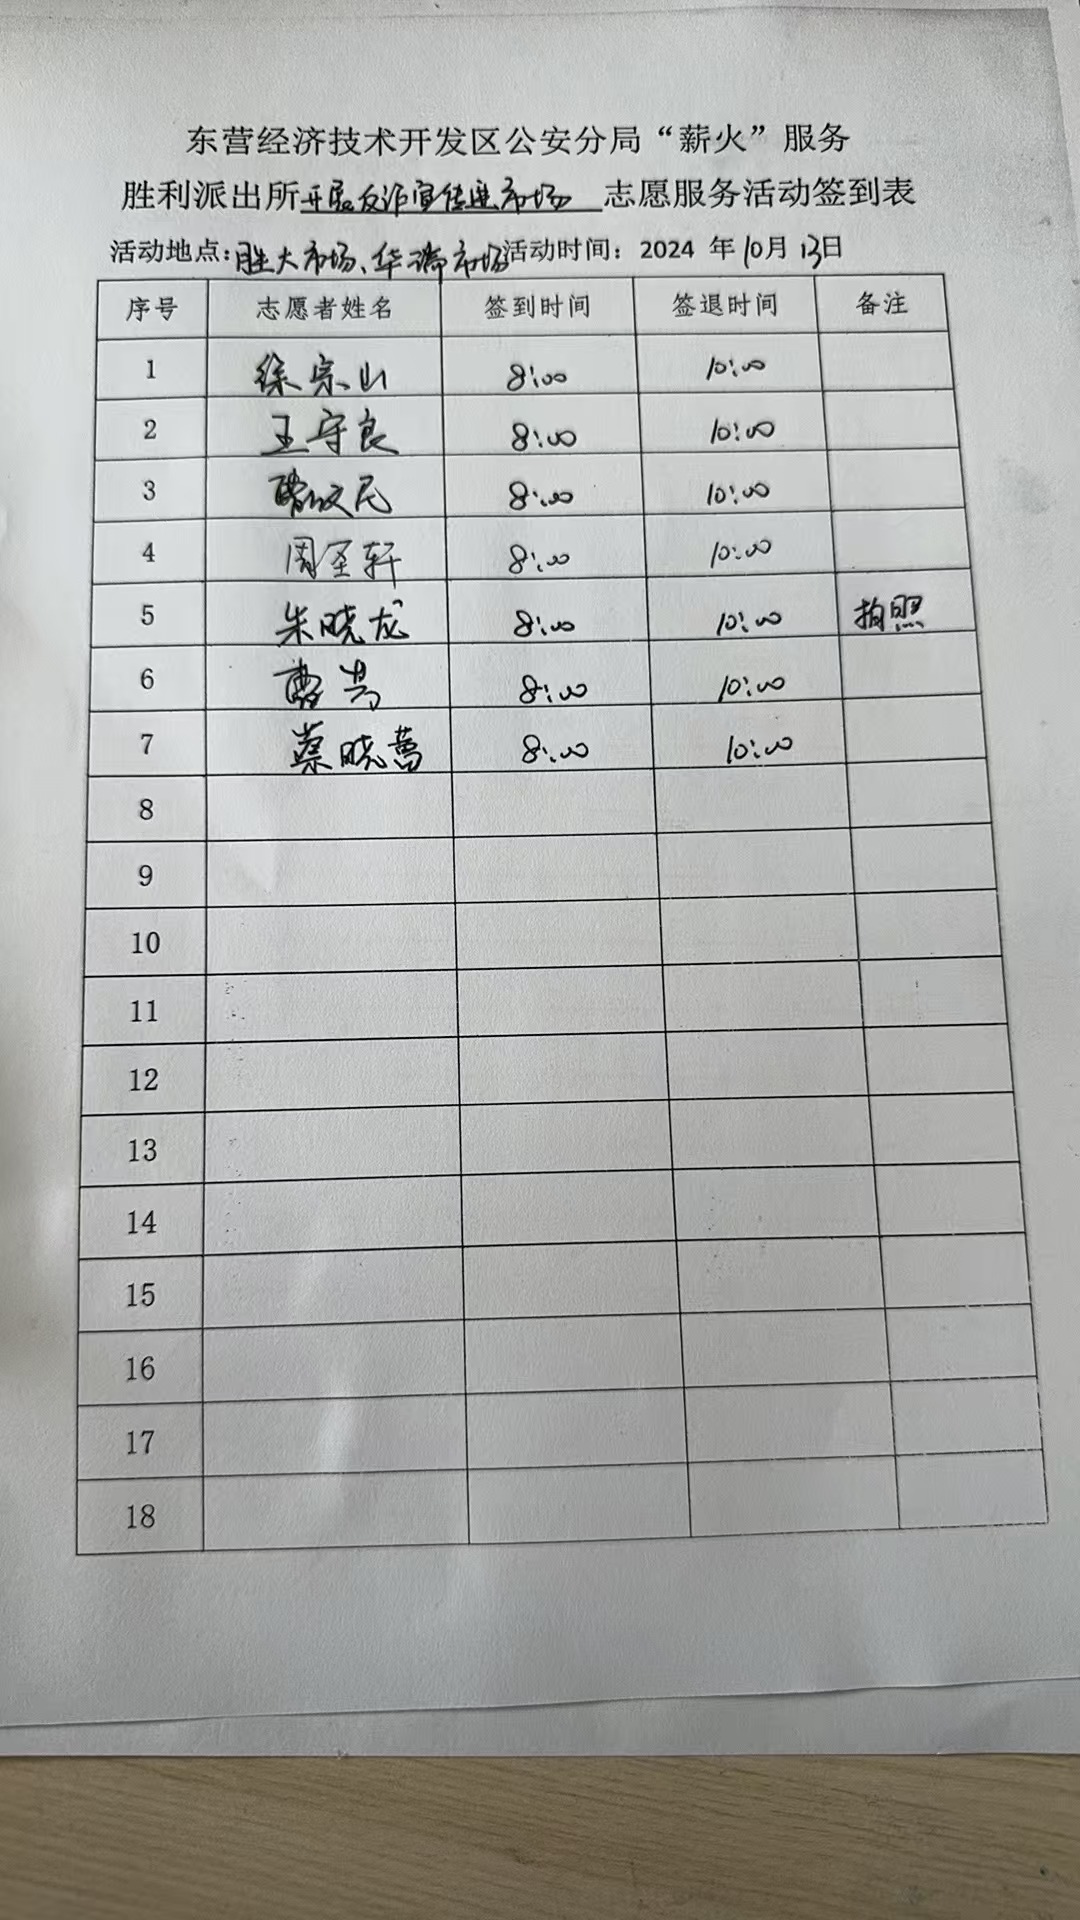 东营经济技术开发区公安分局“薪火”服务
胜利派出所开展反诈宣传进市场 志愿服务活动签到表
活动地点:胜大市场、华瑞市场 活动时间：2024 年10月13日
序号 志愿者姓名 签到时间 签退时间 备注
1 徐宗山 8:00 10:00
2 王守良 8:00 10:00
3 8:00 10:00
4 周圣轩 8:00 10:00
5 朱晓龙 8:00 10:00 拍照
6 8:00 10:00
7 8:00 10:00
8
9
10
11
12
13
14
15
16
17
18